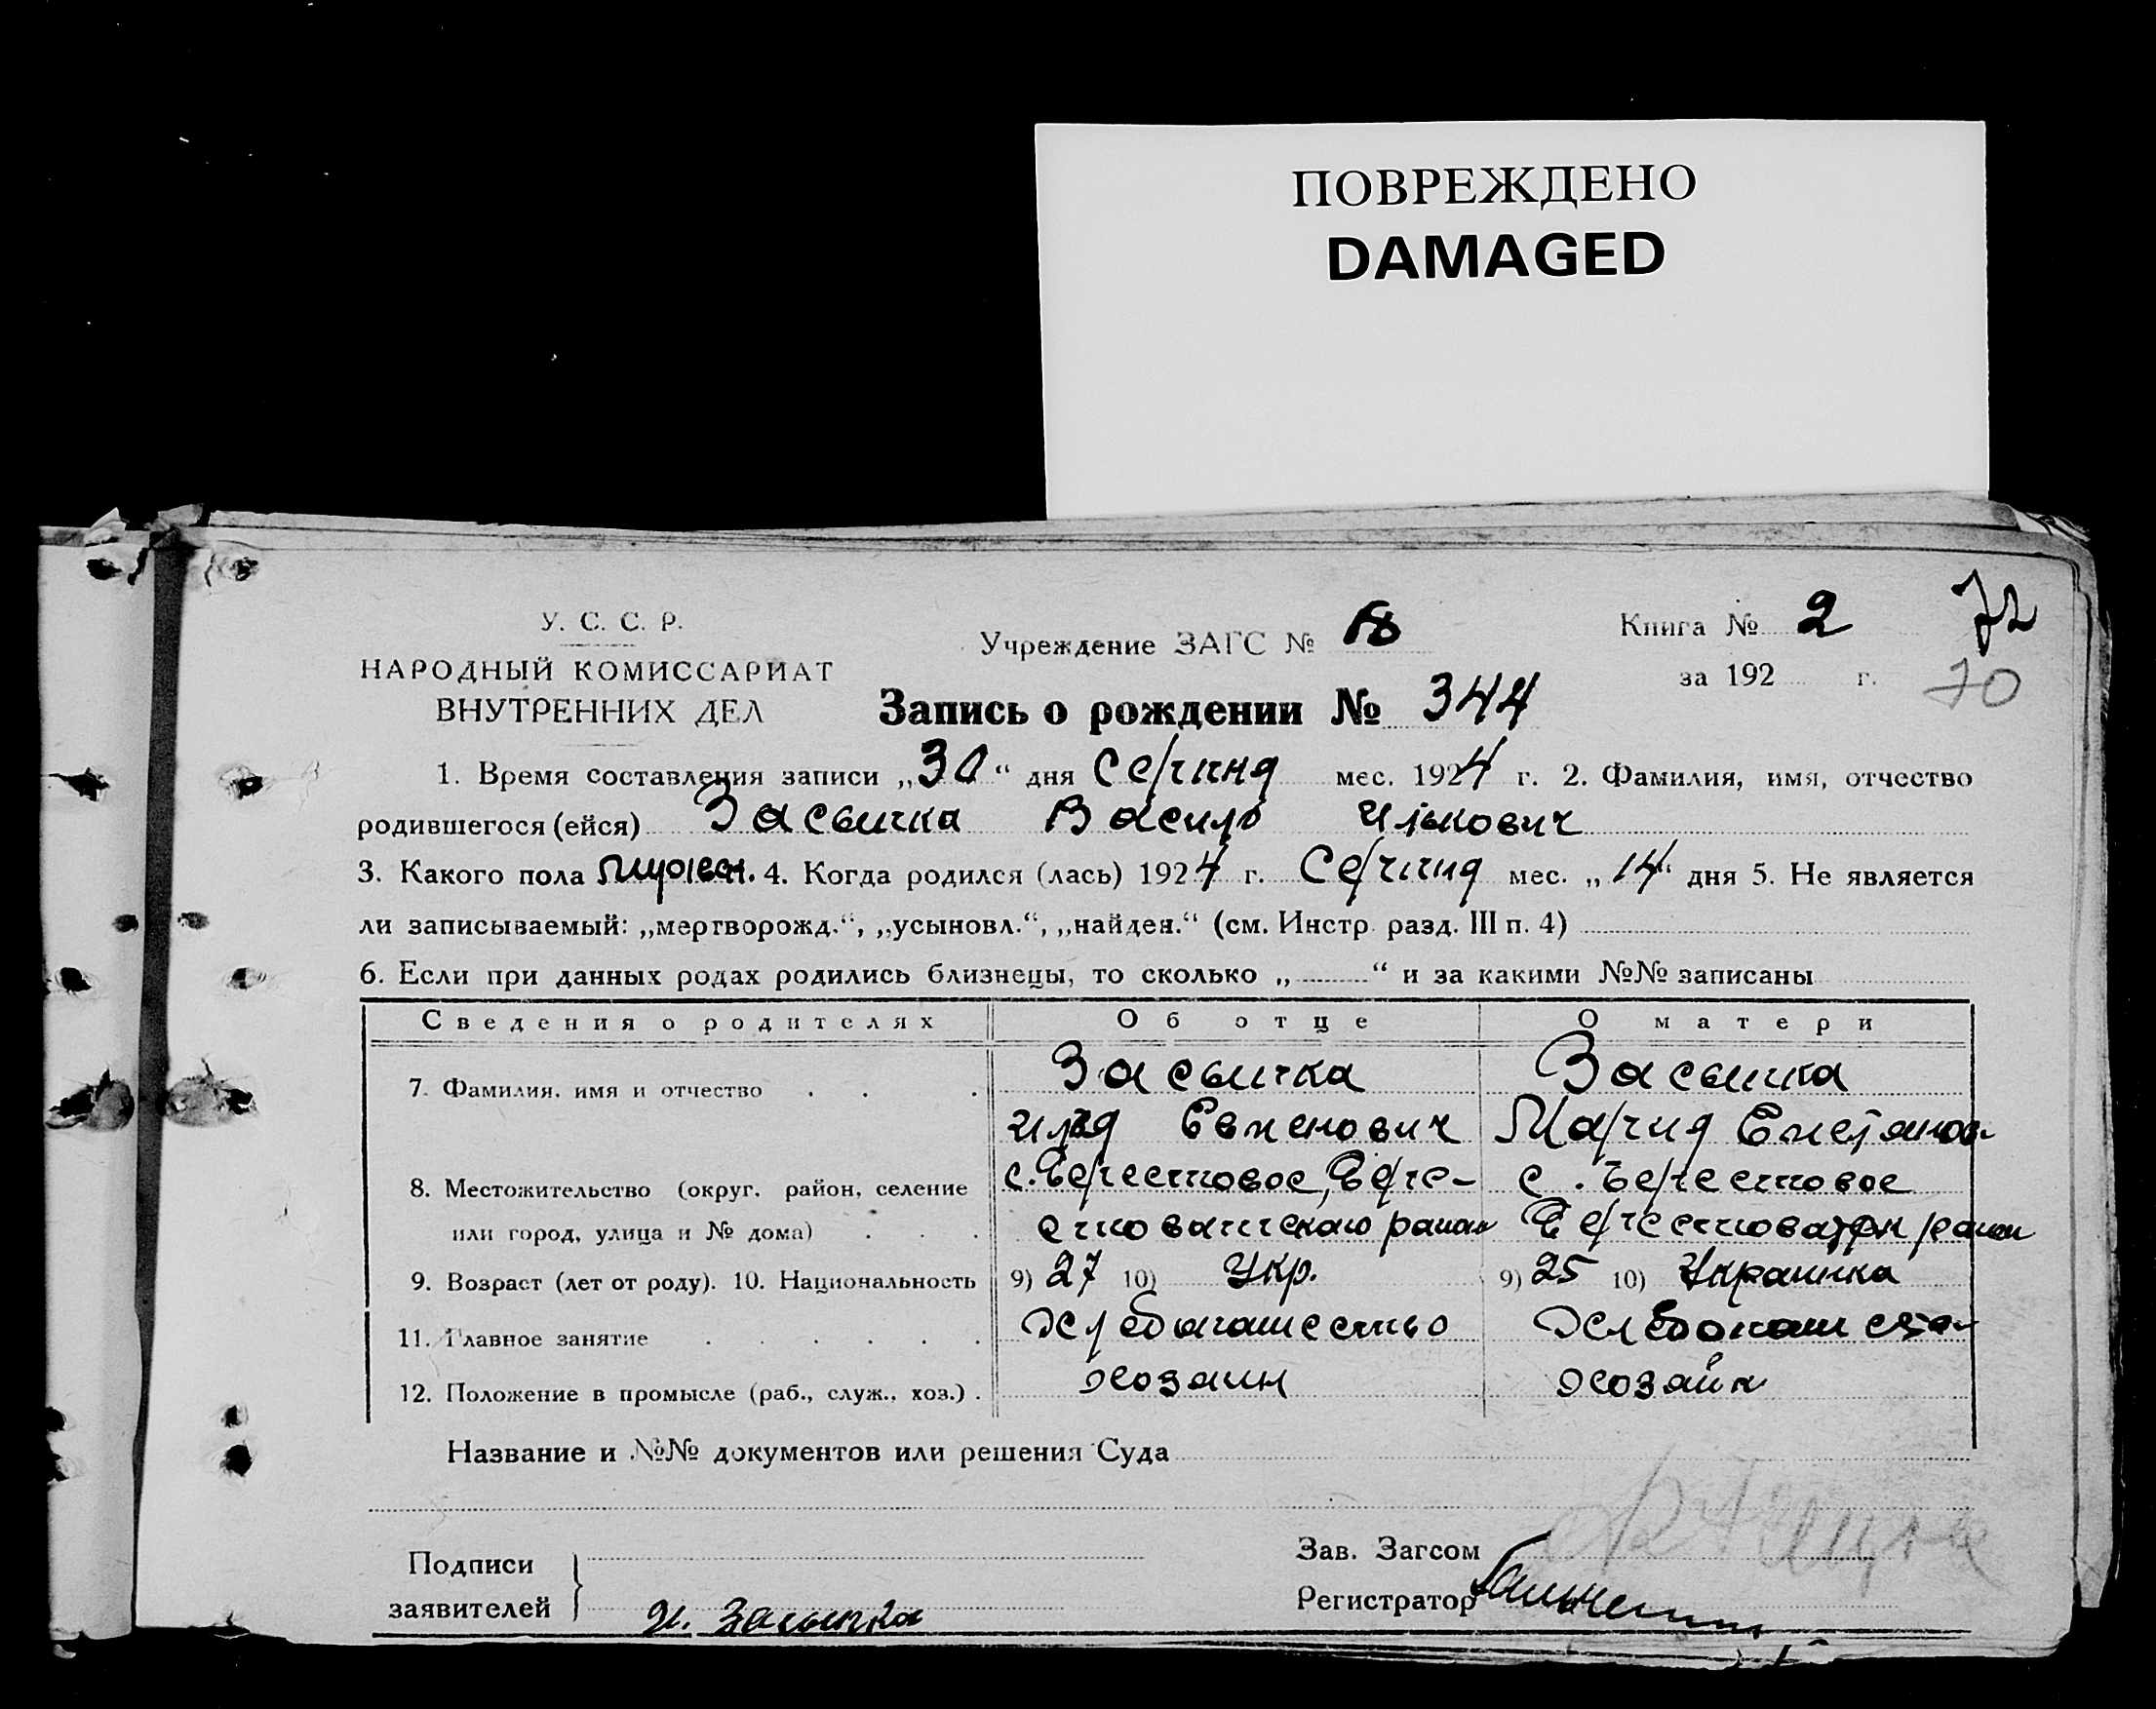 ПОВРЕЖДЕНО
DAMAGED
У. С. С. Р.
НАРОДНЫЙ КОМИССАРИАТ
ВНУТРЕННИХ ДЕЛ
Учреждение ЗАГС №
Книга № 2
72
за 192 г.
70
Запись о рождении № 344
1. Время составления записи „30“ дня Серпня мес. 1924 г. 2. Фамилия, имя, отчество
родившегося (ейся) Засыпка Василь Ількович
3. Какого пола 4. Когда родился (лась) 1924 г. Серпня мес. „14“ дня 5. Не является
ли записываемый: „мертворожд.“, „усыновл.“, „найден.“ (см. Инстр. разд. III п. 4)
6. Если при данных родах родились близнецы, то сколько „ “ и за какими №№ записаны
Сведения о родителях Об отце О матери
7. Фамилия, имя и отчество Засыпка Засыпка
Илья Евменович Мария
8. Местожительство (округ, район, селение с. Берестовое, Бере- с. Берестовое
или город, улица и № дома) района район
9. Возраст (лет от роду). 10. Национальность 9) 27 10) Укр. 9) 25 10) Украинка
11. Главное занятие Хлебопашество
12. Положение в промысле (раб., служ., хоз.) хозаин хозайк
Название и №№ документов или решения Суда
Подписи
заявителей И. Засыпка
Зав. Загсом
Регистратор